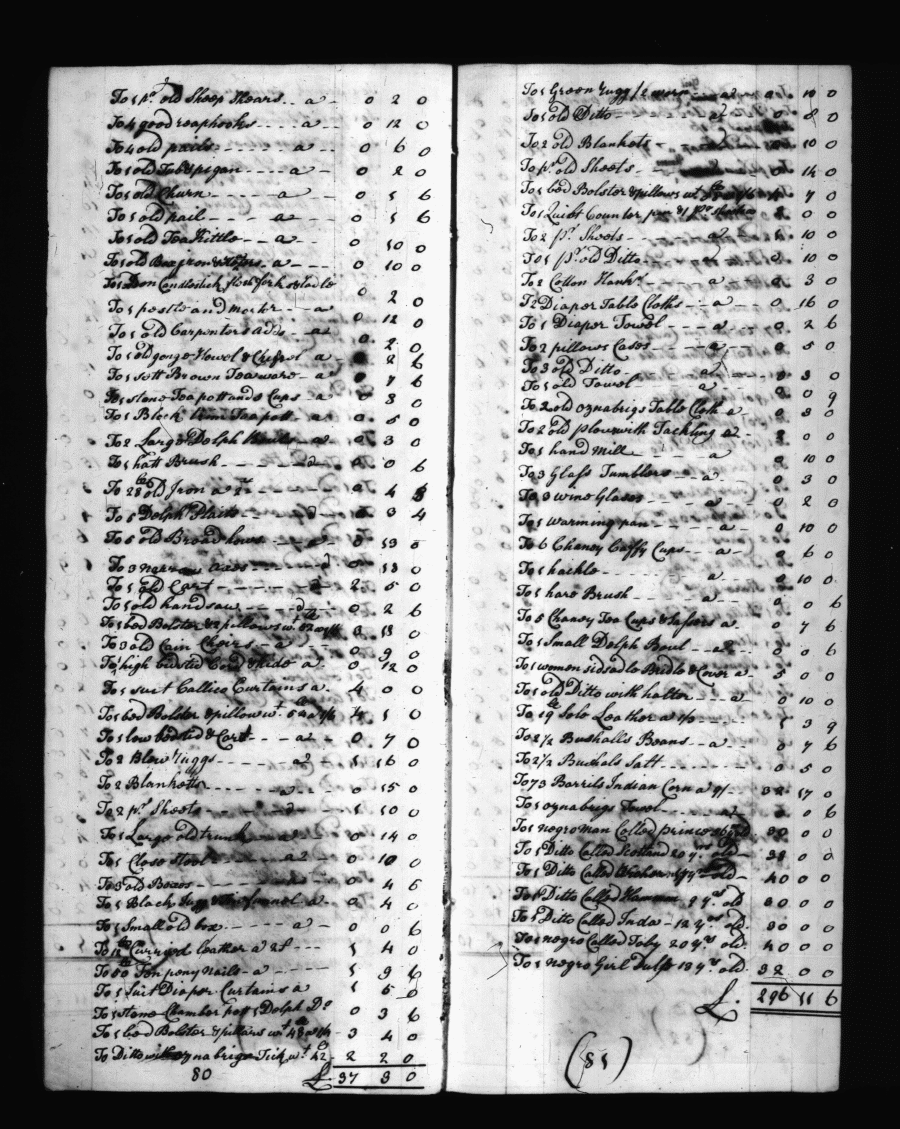 To 1 pr. old Sheep Shears - - a - 0 2 0
To 4 good reaphooks - - - - a - - 0 12 0
To 4 old pails - - - a - - 0 6 0
To 1 old Tub & pigan - - - - a - - 0 2 0
To 1 old Churn - - - - a - - 0 1 6
To 1 old pail - - - - a - - 0 1 6
To 1 old Tea Kittle - - a - - 0 10 0
To 1 old Box Iron & a - 0 10 0
To 1 Iron Candlestick, flesh fork & ladle 0 2 0
To 1 pestle and morter - - a 0 12 0
To 1 old Carpenters adds - - a 0 2 0
To 1 old gouge Howel & Chissel a - 2 6
To 1 sett Brown Tea ware - a 7 6
To 1 stone Tea pott and 2 Cups - a 0 3 0
To 1 Black Tea pott - a - 0 5 0
To 2 Large Delph Bowls - a 0 3 0
To 1 hatt Brush - - - - 0 6
To 28 lb old Iron a 2d - - - - 4 8
To 5 Delph Plates - - 3 4
To 5 old Broad hows 13 0
To 3 narrow axes - - - 13 0
To 1 old Cart - - - - 2 5 0
To 1 old hand saw - - - 0 2 6
To 1 bed Bolster & 2 pillows wt. 3 13 0
To 3 old Cain Chairs - - a - 0 9 0
To 1 high bedsted Cord & hide a - 0 12 0
To 1 suit Callico Curtains a - 4 0 0
To 1 bed Bolster & pillow wt. 54 a 1/6 4 1 0
To 1 low bedsted & Cord - - a - - 0 7 0
To 2 Blew ruggs - - - - a - - 1 16 0
To 2 Blanketts - - - 0 15 0
To 2 pr. Sheets - - - 1 10 0
To 1 Large old trunk 0 14 0
To 1 Close stool - - - a - - 0 10 0
To 3 old Boxes - - - 0 4 6
To 1 Black Jugg & funnel a 0 4 0
To 1 Small old box - - - - a - - 0 0 6
To 12 lb Curried leather a 2/ - - - 1 4 0
To Tenpeny Nails - a - - - - 1 9 6
To 1 Suit Diaper Curtains a 1 5 0
To 1 stone Chamber pot 1 Delph Do. 0 3 6
To 1 bed Bolster & pillars wt. 48 a 1/4 3 4 0
To Ditto with oznabrigs Tick wt. 42 2 2 0
80 £ 37 3 0
To 1 Green rugg 1/2 worn - - a - 10 0
To 1 old Ditto - - - 8 0
To 2 old Blankets - 10 0
To pr. old Sheets - - 14 0
To 1 bed Bolster & pillows wt 7 0
To 1 Quilt Counter pin & 1 pr. 0 0
To 2 pr. Sheets - - - 10 0
To 1 pr. old Ditto - - 10 0
To 2 Cotton - - a - 3 0
To 2 Diaper Table Cloths - - a - 0 16 0
To 1 Diaper Towel - - - a - - 0 2 6
To 2 pillows Cases - - - a - - 0 5 0
To 3 old Ditto - - - a 0 3 0
To 1 old Towel - - - a - - 0 0 9
To 2 old oznabrigs Table Cloth a - 0 3 0
To 2 old plows with Tackling a - 0 0
To 1 hand Mill - - - a - - 0 10 0
To 3 Glass Tumblers - - a - - 0 3 0
To 3 wine Glases - - - a - - 0 2 0
To 1 warming pan - - - a - - 0 10 0
To 6 Chaney Caffy Cups - - a - - 0 6 0
To 1 hackle - - - a - - 10 0
To 1 hare Brush - - - a - - 0 0 6
To 5 Chaney Tea Cups & Sassers a - 0 7 6
To 1 Small Delph Boul - - a - - 0 0 6
To 1 women sidsadle Bridle & Cover a - 5 0 0
To 1 old Ditto with halter - - a - 0 10 0
To 19 lb Sole Leather a 1/3 - - 1 3 9
To 2 1/2 Bushalls Beans - - a - - 0 7 6
To 2 1/2 Bushels Salt - - - 0 5 0
To 73 Barrils Indian Corn a 9/ - - 32 17 0
To 1 oznabrigs Towel - - - a - - 0 6
To 1 negro man Called prince 30 0 0
To 1 Ditto Called Scotland 20 yrs old - 0 0
To 1 Ditto Called old - 40 0 0
To 1 Ditto Called old 30 0 0
To 1 Ditto Called Inda - 12 yrs old. 30 0 0
To 1 negro Called Toby 20 yrs old. 40 0 0
To 1 negro Girl 13 yrs old. 32 0 0
£. 296 11 6
(81)